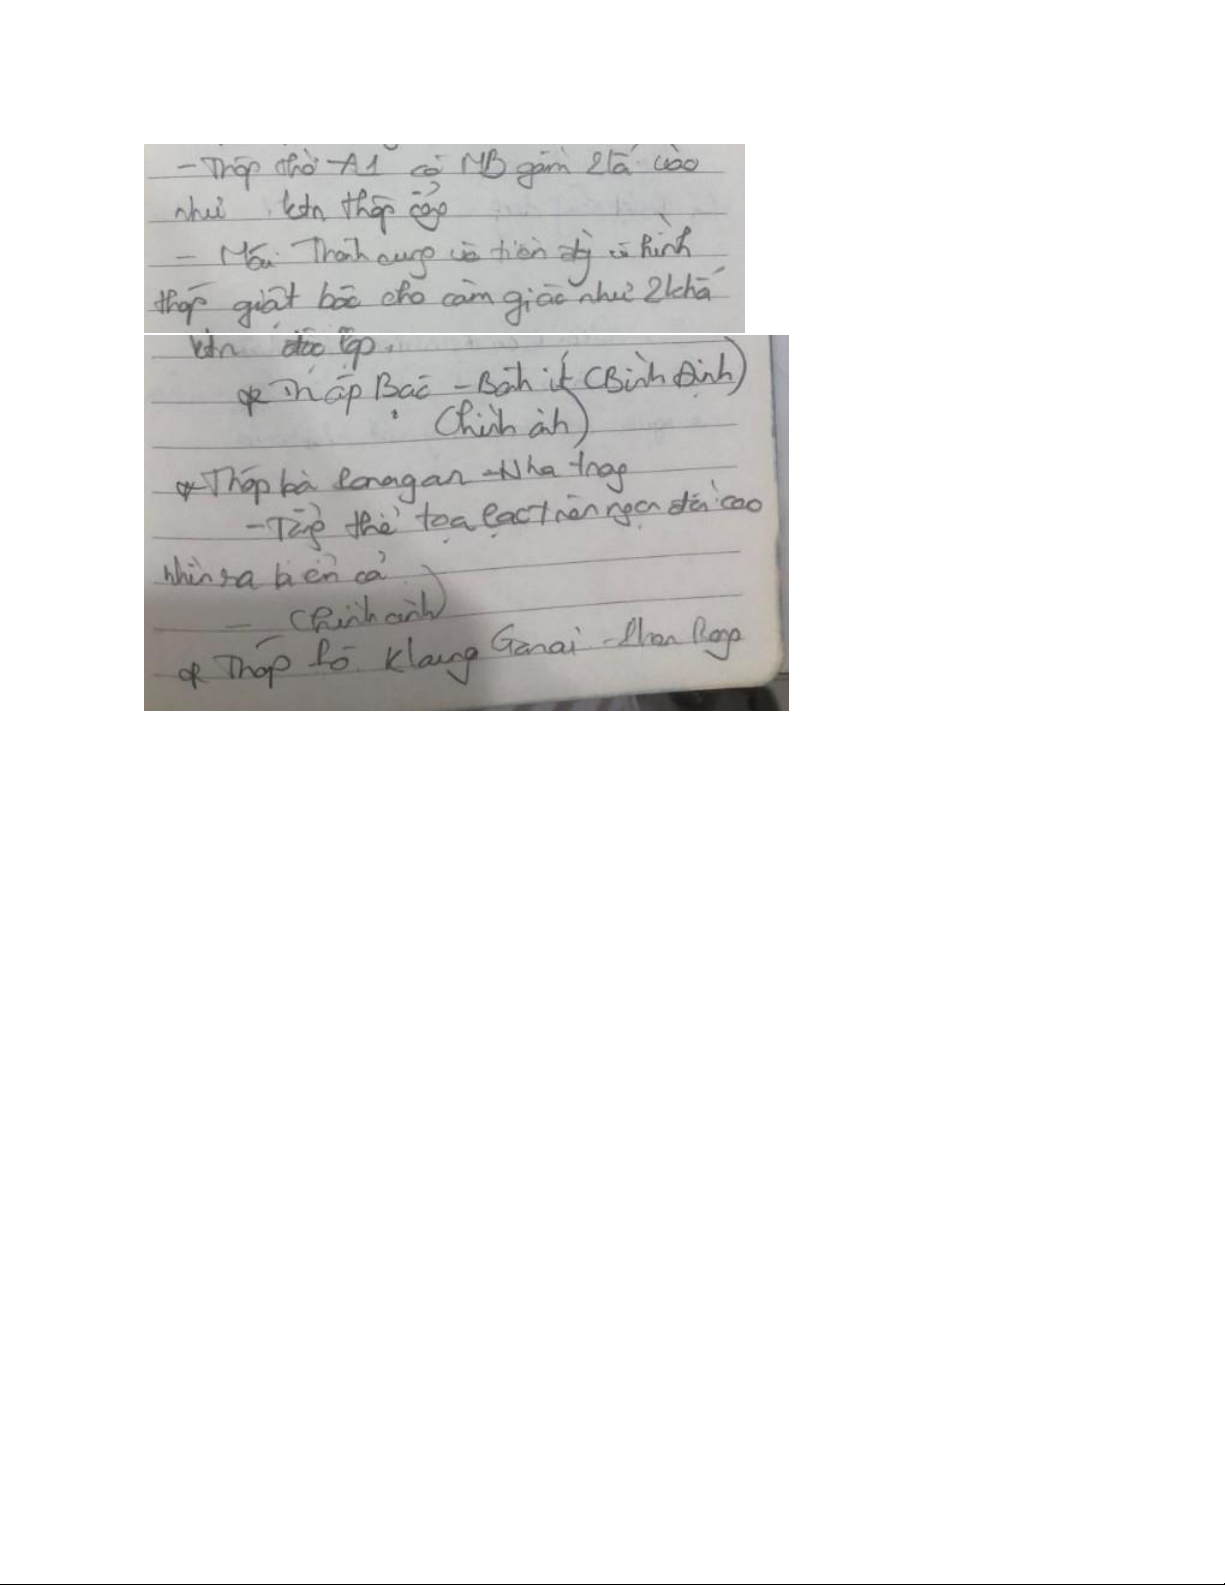 - Tháp thờ A1 có MB gồm 2 lá vào
như ktn tháp cổng
- Mái Thánh cung và tiền đỳ có hình
tháp giật bậc cho cảm giác như 2 khố
ktn độc lập.
* Tháp Bạc - Bánh ít (Bình Định)
(hình ảnh)
* Tháp bà Ponagar - Nha trang
- Tổng thể tọa lạc trên ngọn đồi cao
nhìn ra biển cả
- (hình ảnh)
* Tháp Pô Klaung Garai - Phan Rang